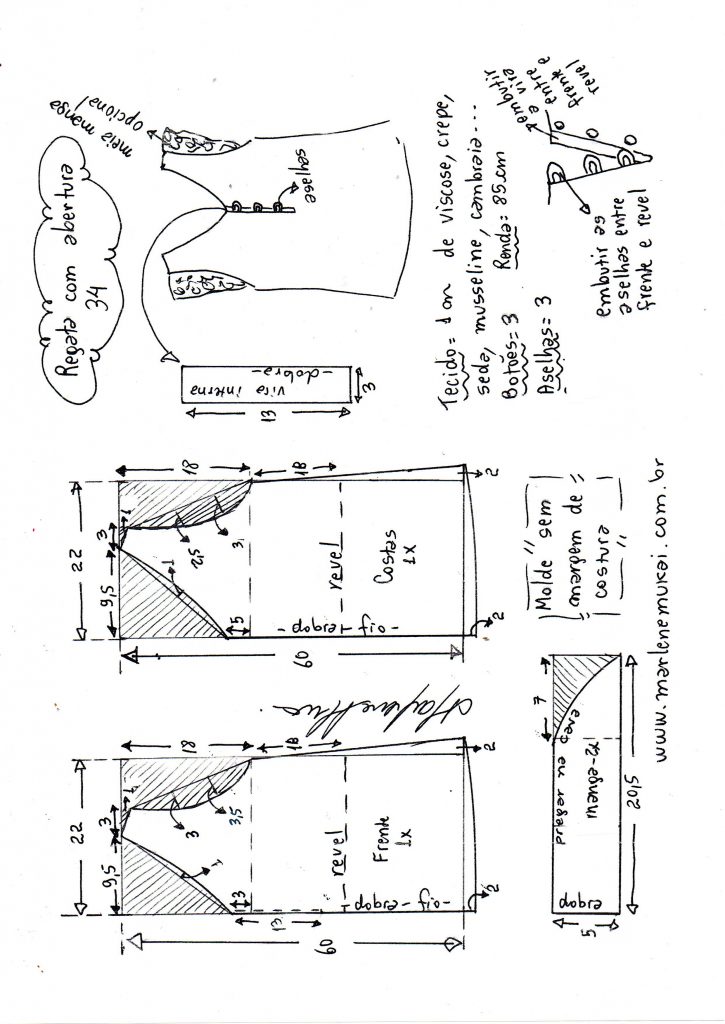 Regata com abertura
34
meia manga
opcional
aselhas
vira interna
-dobra-
13
3
Tecido = 1m de viscose, crepe,
seda, musseline, cambraia...
Botões = 3 Renda = 85cm
Aselhas = 3
embutir
a vira
entre
frente e
revel
embutir as
aselhas entre
frente e revel
22
9,5
3
1
18
18
1
3
3,5
3
13
60
revel
Frente
1x
dobra-fio-
2
2
22
9,5
3
1
18
18
1
2,5
3
5
60
revel
Costas
1x
-dobra-fio-
2
2
Molde "sem"
margem de
costura
7
pregar na cava
manga-2x
dobra
5
20,5
www.marlenemukai.com.br